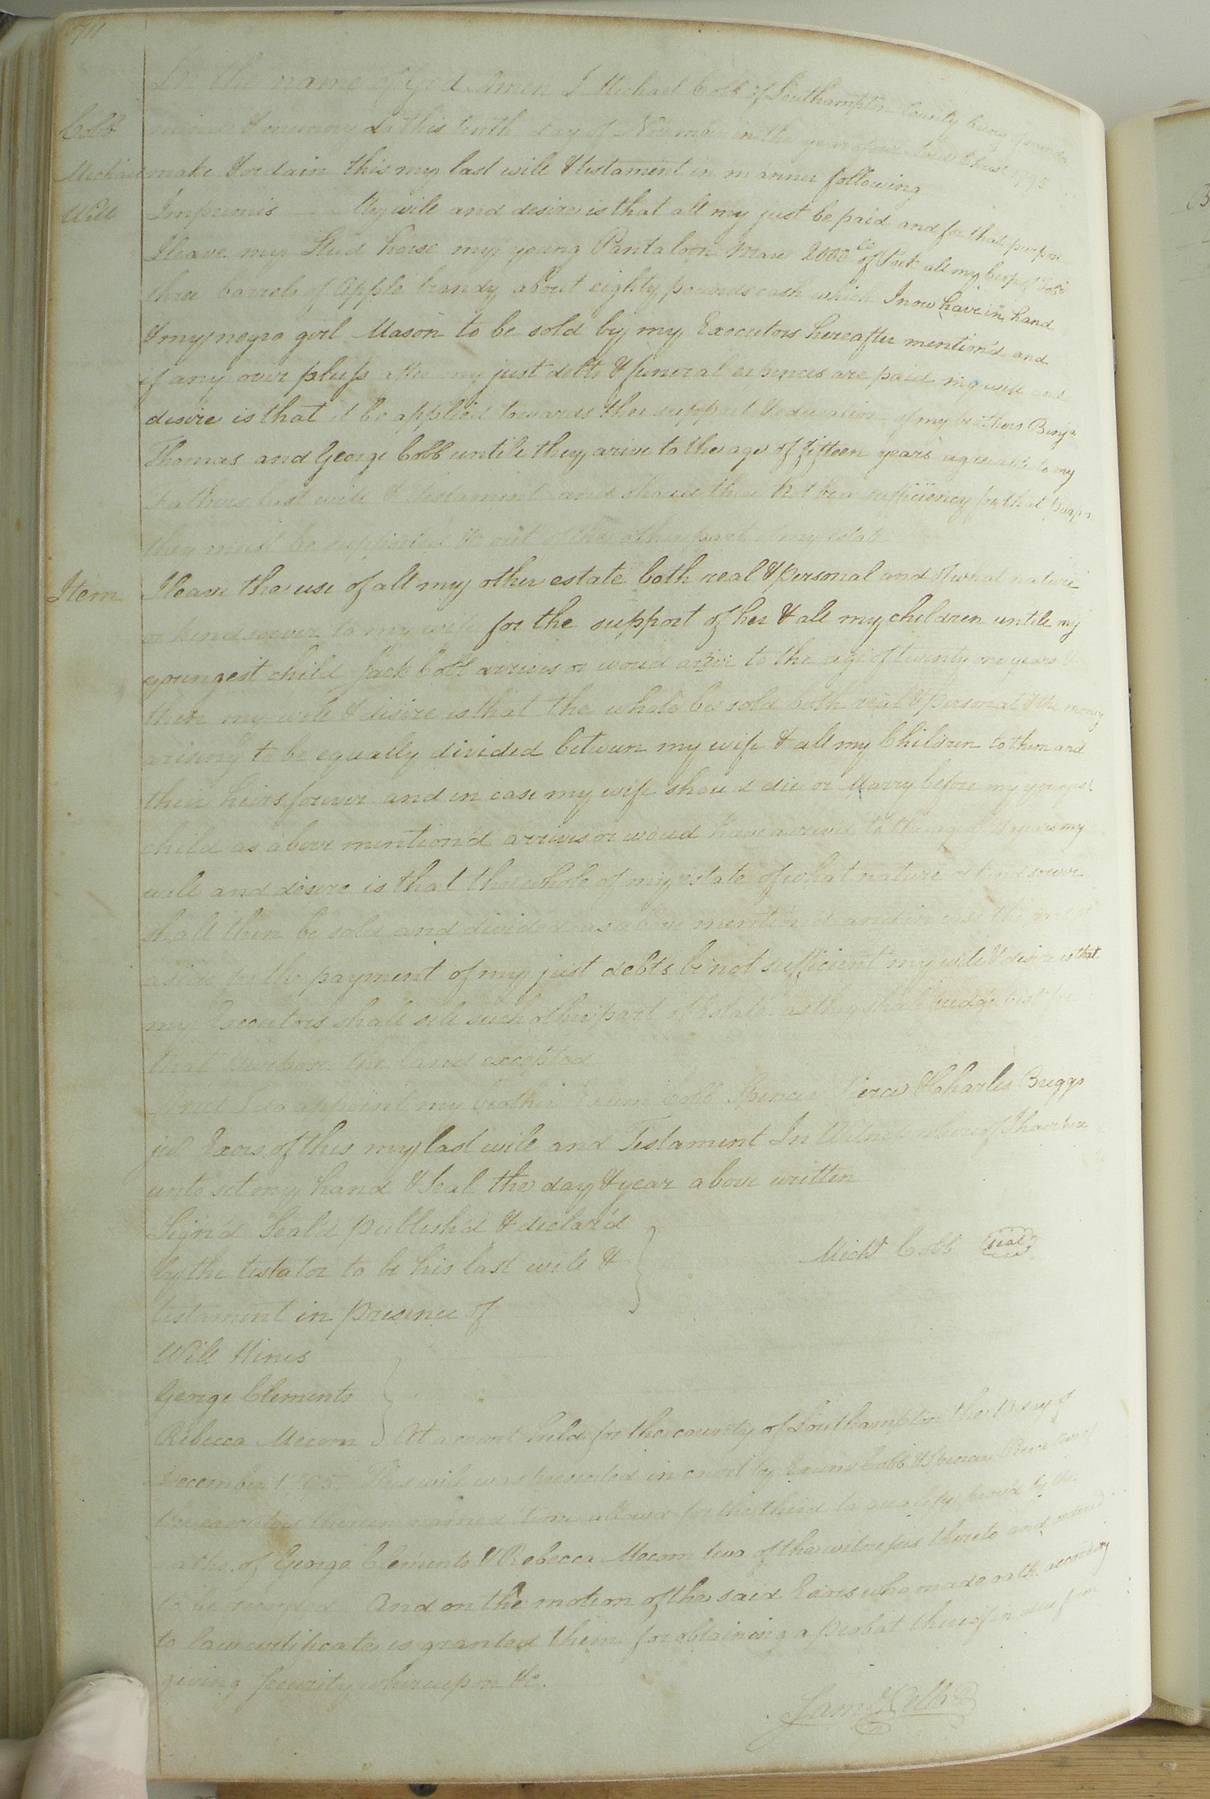 In the name of God Amen I Michael Cobb of Southampton County being of sound
Cobb
Michael
Will
mind & memory do this tenth day of November in the year of our Lord Christ 1795
make & ordain this my last will & testament in manner following
Imprimis My will and desire is that all my just be paid and for that purpose
I leave my Stud horse my young Pantaloon Mare 2000 lb of Pork all my
three barrels of Apple brandy about eighty pounds cash which I now have in hand
& my negro girl Mason to be sold by my Executors hereafter mention'd and
if any over pluss after my just debts & funeral expences are paid my will and
desire is that it be applied towards the support & education of my brothers Benja
Thomas and George Cobb untill they arive to the age of fifteen years agreeable to my
Fathers last will & testament and should there not be a sufficiency for that purpose
they must be supported &c out of the other part of my estate
Item I leave the use of all my other estate both real & personal and of what nature
or kind soever to my wife for the support of her & all my children untill my
youngest child Jack Cobb arrives or woud arive to the age of twenty one years &
then my will & desire is that the whole be sold both real & personal & the money
arising to be equally divided between my wife & all my Children to them and
their heirs forever and in case my wife shou'd die or Marry before my youngest
child as above mention'd arrives or woud have arrived to the age of years my
will and desire is that the whole of my estate of what nature or kind soever
shall then be sold and divided as above mention'd and in case the
aside for the payment of my just debts be not sufficient my will & desire is that
my Executors shall sell such other part of Estate as they shall judge best for
that purpose the land excepted
I do appoint my brother Exum Cobb Spencer Pierce & Charles Briggs
jur Exors of this my last will and Testament In Witness whereof I have here
unto set my hand & seal the day & year above written
Sign'd Seal'd publish'd & declar'd
by the testator to be his last will &
testament in presence of
Michl Cobb seal
Will Hines
George Clements
Rebecca Mecom
At a court held for the county of Southampton the day of
December 1795 This will was presented in court by Exum Cobb & Spencer Pierce two of
the executors therein named time allowed for the third to qualify, prov'd by the
oaths of George Clements & Rebecca Mecom two of the witnesses thereto and order'd
to be recorded And on the motion of the said Exors who made oath according
to law certificate is granted them for obtaining a probat thereof in due form
giving security whereupon &c.